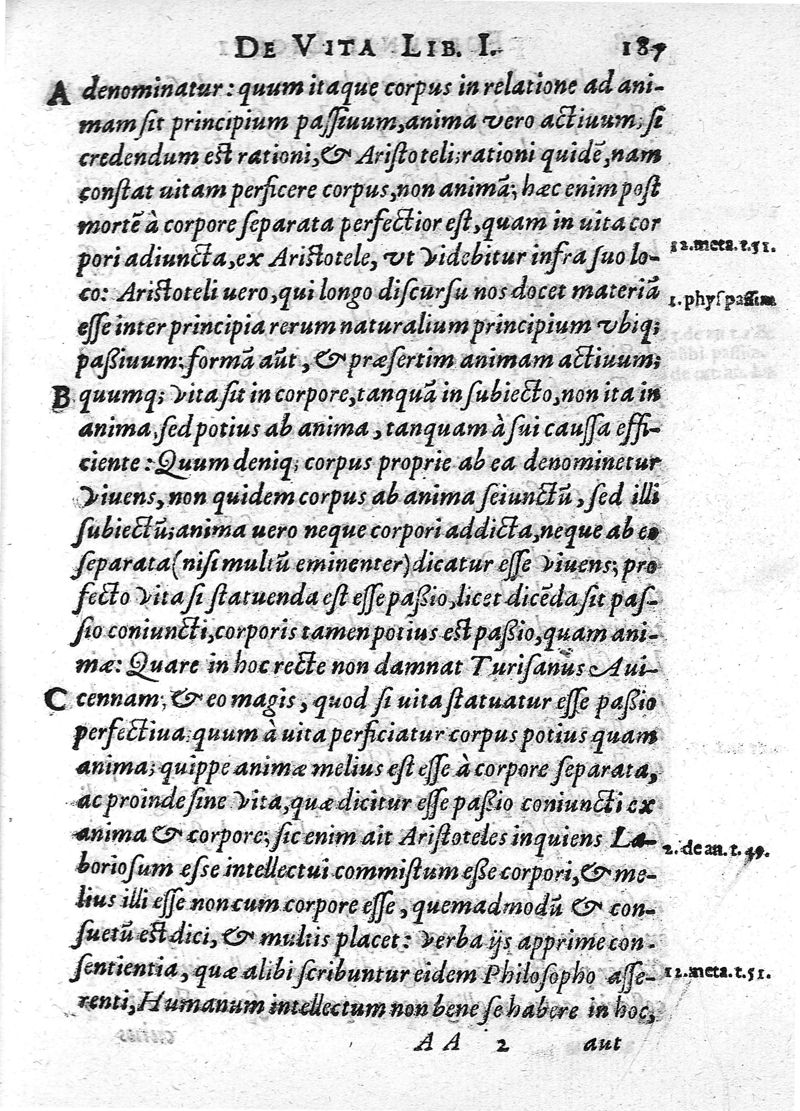 DE VITA LIB. I. 187
A denominatur: quum itaque corpus in relatione ad ani-
mam sit principium paſſiuum, anima vero actiuum; ſi
credendum eſt rationi, & Ariſtoteli; rationi quidē, nam
conſtat uitam perficere corpus, non animā; hæc enim poſt
mortē à corpore ſeparata perfectior eſt, quam in uita cor
pori adiuncta, ex Ariſtotele, vt videbitur infra ſuo lo-
12.meta.t.51.
co: Ariſtoteli uero, qui longo diſcurſu nos docet materiā
1. phyſ paſſim
eſſe inter principia rerum naturalium principium vbiq;
paßiuum; formā aūt, & præſertim animam actiuum;
B quumq; vita ſit in corpore, tanquā in ſubiecto, non ita in
anima, ſed potius ab anima, tanquam à ſui cauſſa effi-
ciente: Quum deniq; corpus proprie ab ea denominetur
viuens, non quidem corpus ab anima ſeiunctū, ſed illi
ſubiectū; anima uero neque corpori addicta, neque ab eo
ſeparata (niſi multū eminenter) dicatur eſſe viuens; pro
fecto vita ſi ſtatuenda eſt eſſe paßio, licet dicēda ſit paſ-
ſio coniuncti, corporis tamen potius eſt paßio, quam ani-
mæ: Quare in hoc recte non damnat Turiſanus Aui-
C cennam; & eo magis, quod ſi uita ſtatuatur eſſe paßio
perfectiua quum à uita perficiatur corpus potius quam
anima; quippe animæ melius eſt eſſe à corpore ſeparata,
ac proinde ſine vita, quæ dicitur eſſe paßio coniuncti ex
anima & corpore; ſic enim ait Ariſtoteles inquiens La-
2. de an. t. 49.
borioſum eſſe intellectui commiſtum eße corpori, & me-
lius illi eſſe non cum corpore eſſe, quemadmodū & con-
ſuetū eſt dici, & multis placet: verba ijs apprime con-
ſentientia, quæ alibi ſcribuntur eidem Philoſopho aſſe-
12.meta.t.51.
renti, Humanum intellectum non bene ſe habere in hoc,
AA 2 aut